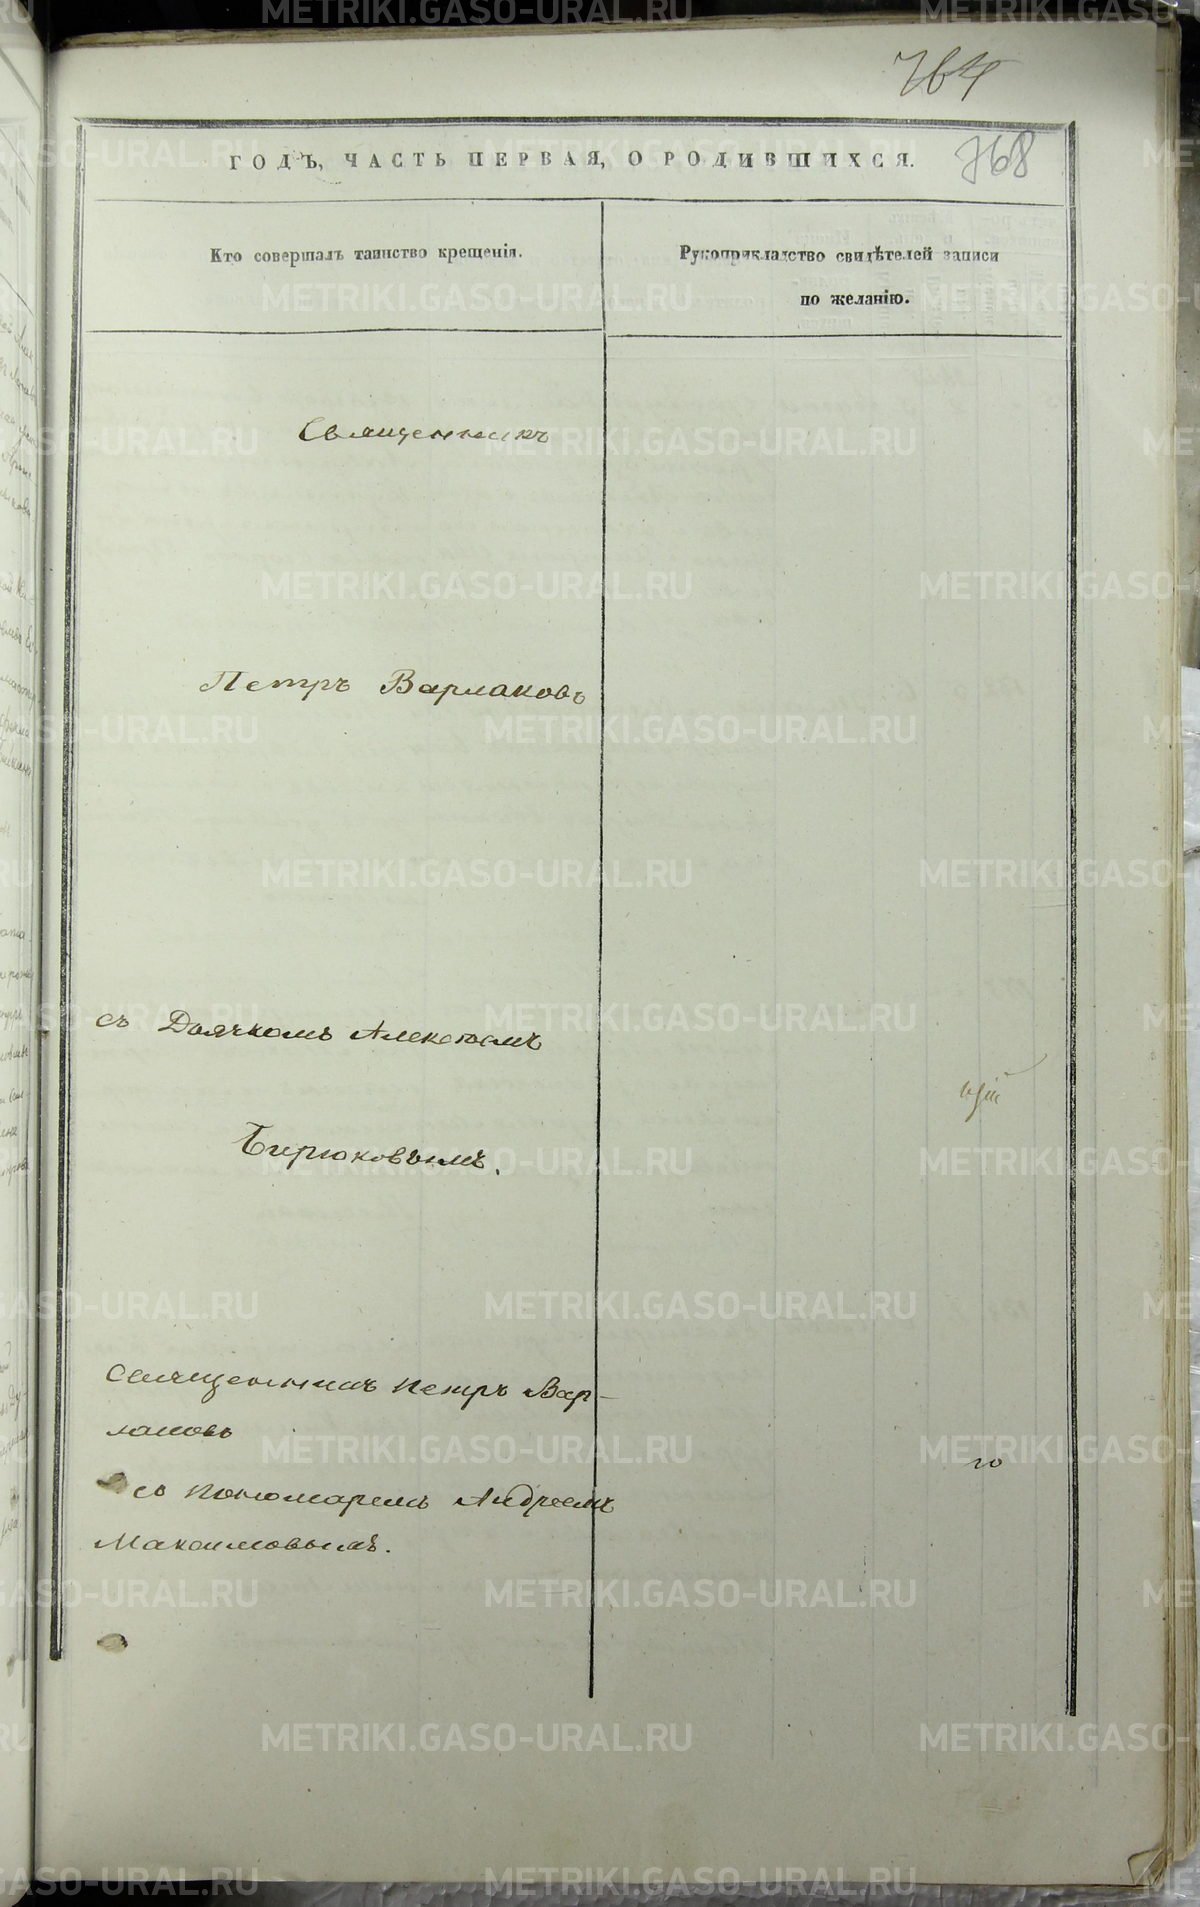 764
768
ГОДЪ, ЧАСТЬ ПЕРВАЯ, О РОДИВШИХСЯ.
Кто совершалъ таинство крещенія.
Рукоприкладство свидѣтелей записи
по желанію.
Священникъ
Петръ Варлаковъ
съ Дьячкомъ Алексѣемъ
Бирюковымъ.
Священникъ Петръ Вар-
лаковъ
съ Пономаремъ Андреемъ
Максимовымъ.
го
METRIKI.GASO-URAL.RU